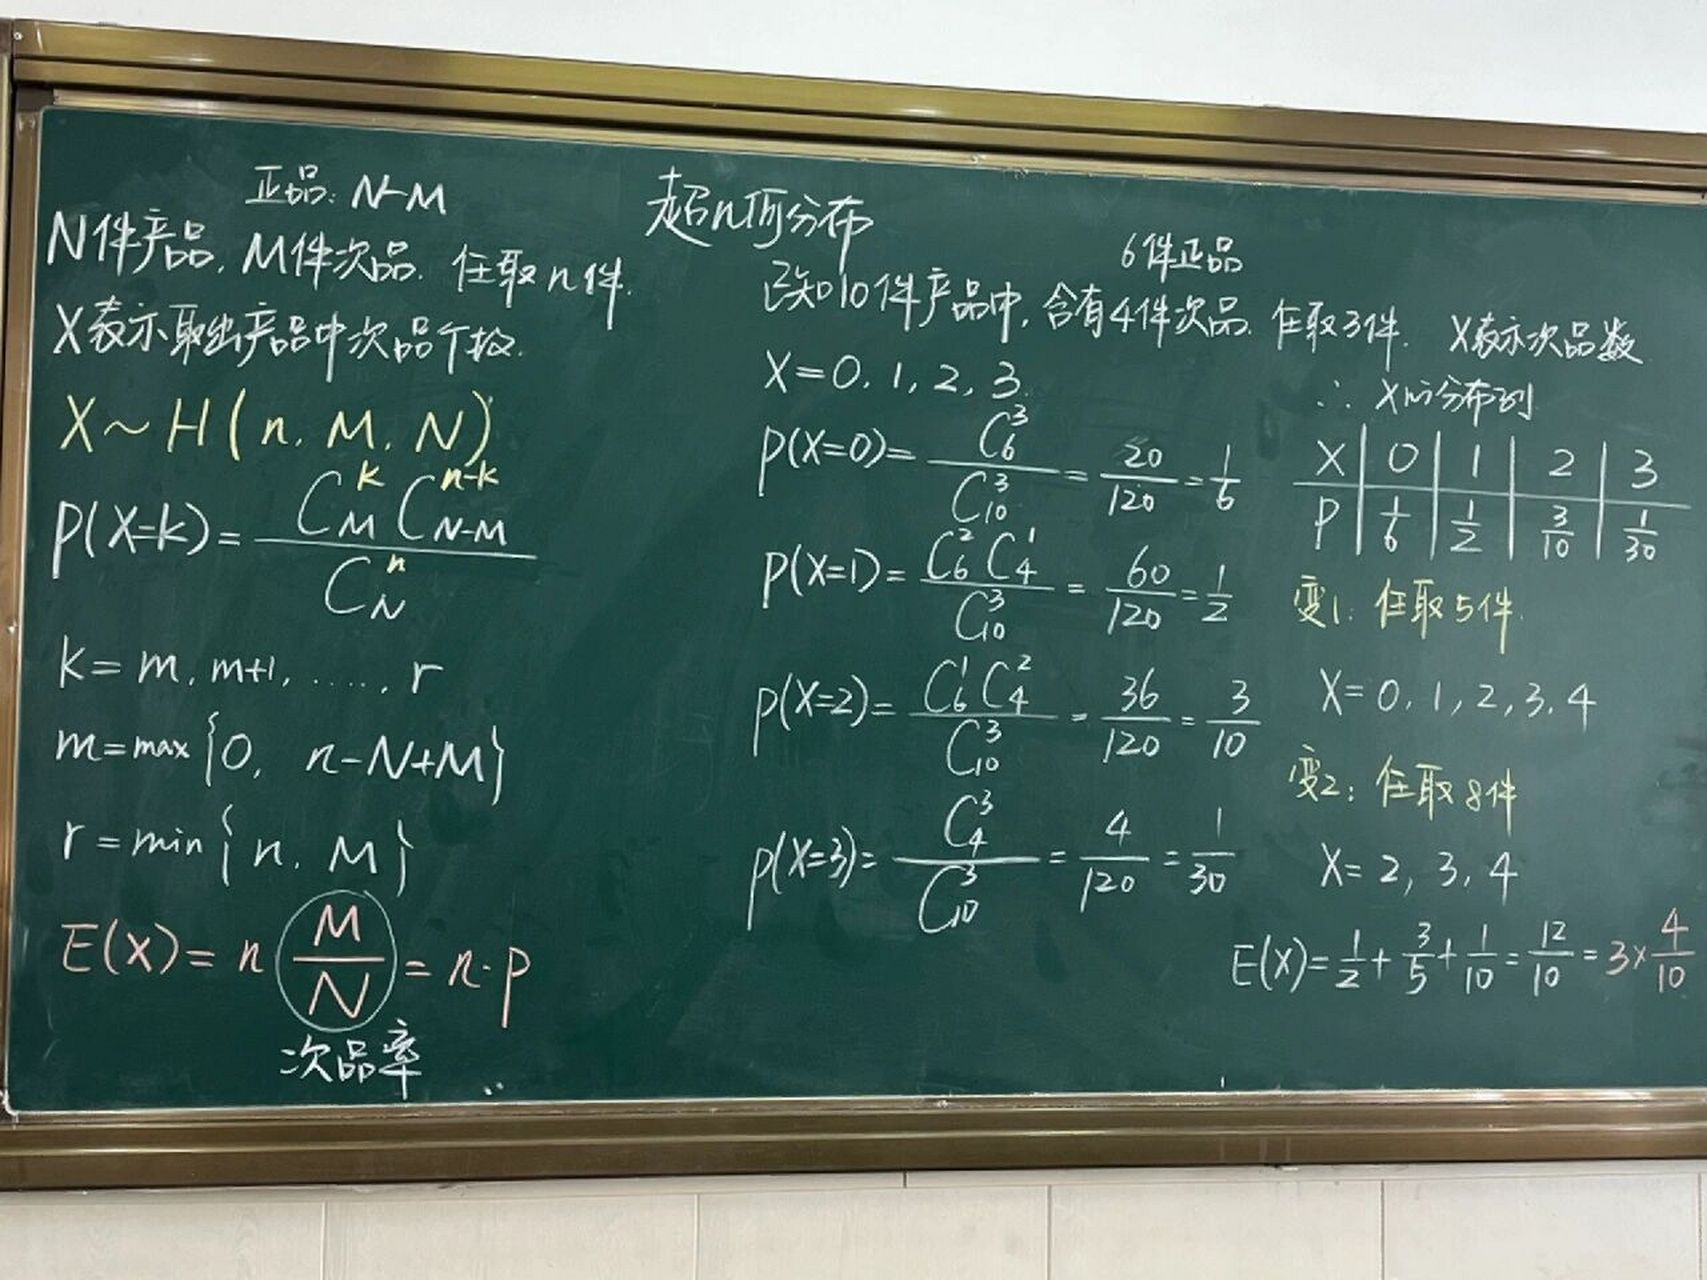 超几何分布
正品: N-M
N件产品, M件次品. 任取n件.
X表示取出产品中次品个数.
X~H(n, M, N)
P(X=k)= C_M^k C_{N-M}^{n-k} / C_N^n
k=m, m+1, ……, r
m=max{0, n-N+M}
r=min{n, M}
E(X)=n M/N = n·p
次品率
6件正品
已知10件产品中, 含有4件次品. 任取3件. X表示次品数
X=0, 1, 2, 3.
P(X=0)= C_6^3 / C_10^3 = 20/120 = 1/6
P(X=1)= C_6^2 C_4^1 / C_10^3 = 60/120 = 1/2
P(X=2)= C_6^1 C_4^2 / C_10^3 = 36/120 = 3/10
P(X=3)= C_4^3 / C_10^3 = 4/120 = 1/30
∴ X的分布列
X | 0 | 1 | 2 | 3
P | 1/6 | 1/2 | 3/10 | 1/30
变1: 任取5件.
X=0, 1, 2, 3, 4
变2: 任取8件
X=2, 3, 4
E(X)= 1/2 + 3/5 + 1/10 = 12/10 = 3× 4/10